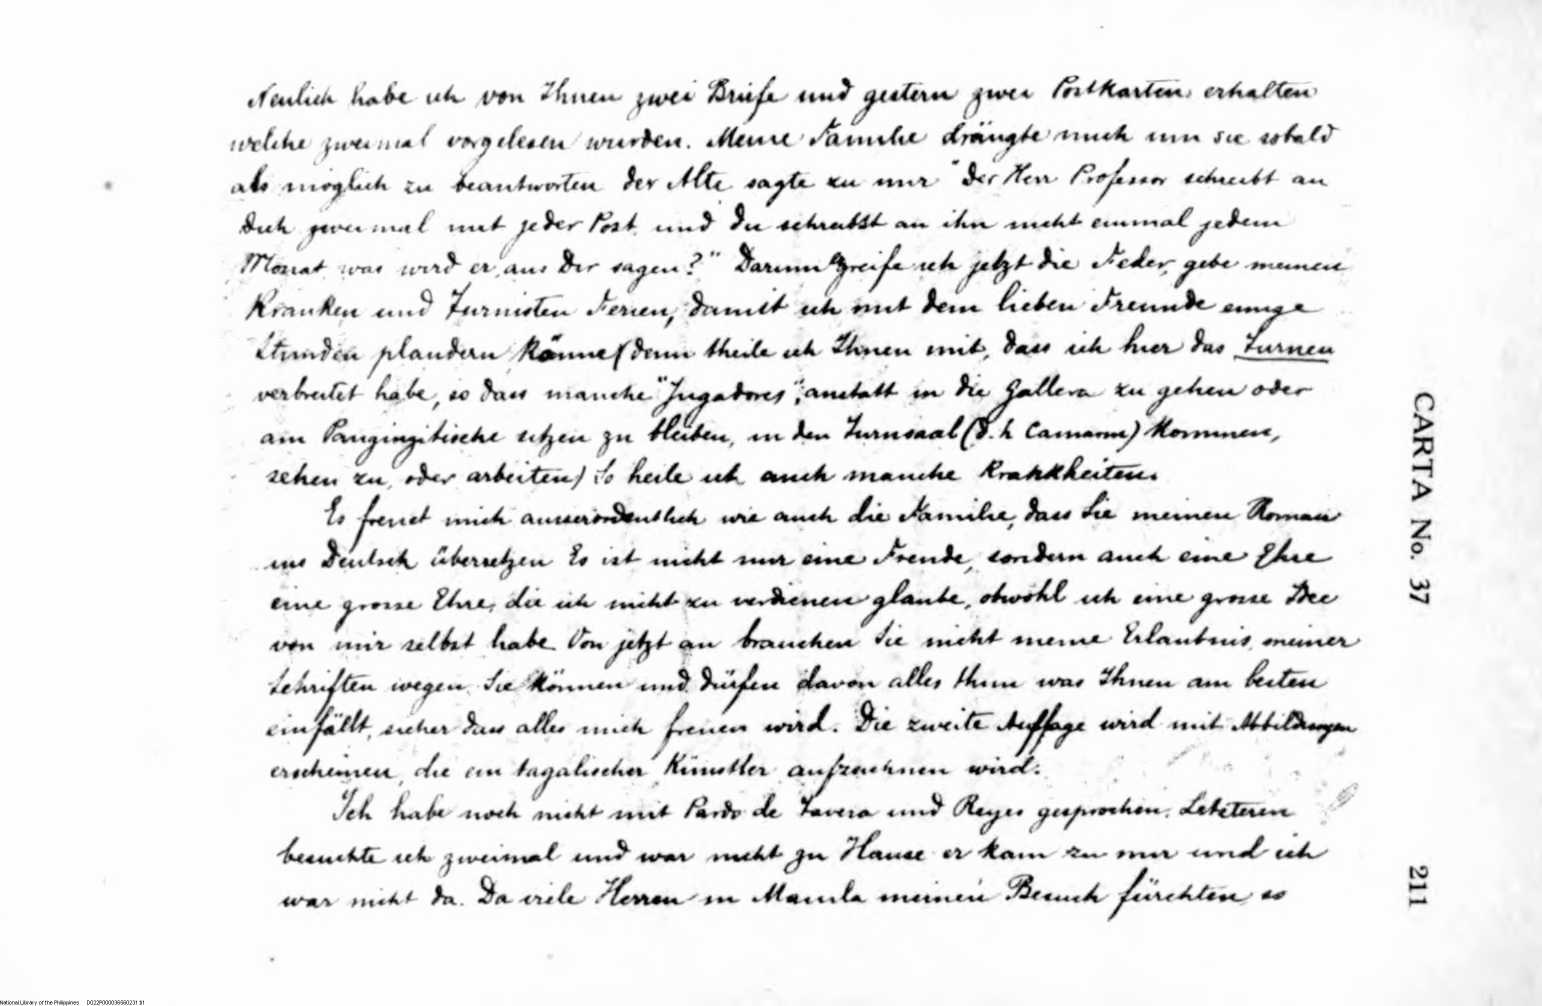 Neulich habe ich von Ihnen zwei Briefe und gestern zwei Postkarten erhalten
welche zweimal vorgelesen wurden. Meine Familie drängte mich um sie sobald
als möglich zu beantworten der Alte sagte zu mir "der Herr Professor schreibt an
dich zweimal mit jeder Post und du schreibst an ihn nicht einmal jedem
Monat, was wird er aus dir sagen?" Darum greife ich jetzt die Feder, gebe meinen
Kranken und Turnisten Ferien, damit ich mit dem lieben Freunde einige
Stunden plaudern könne (denn theile ich Ihnen mit, dass ich hier das Turnen
verbreitet habe, so dass manche "Jugadores", anstatt in die Gallera zu gehen oder
am Panginguitische sitzen zu bleiben, in den Turnsaal (d. h Camarin) kommen,
sehen zu, oder arbeiten) So heile ich auch manche Krankheiten.
Es freuet mich ausserordentlich wie auch die Familie, dass Sie meinen Roman
ins Deutsch übersetzen Es ist nicht nur eine Freude, sondern auch eine Ehre
eine grosse Ehre, die ich nicht zu verdienen glaube, obwohl ich eine grosse Idee
von mir selbst habe. Von jetzt an brauchen Sie nicht meine Erlaubnis meiner
Schriften wegen. Sie können und dürfen davon alles thun was Ihnen am besten
einfällt, sicher dass alles mich freuen wird. Die zweite Auflage wird mit Abbildungen
erscheinen, die ein tagalischer Künstler aufzeichnen wird.
Ich habe noch nicht mit Pardo de Tavera und Reyes gesprochen. Letzteren
besuchte ich zweimal und war nicht zu Hause er kam zu mir und ich
war nicht da. Da viele Herren in Manila meinen Besuch fürchten, so
CARTA No. 37
211
National Library of the Philippines